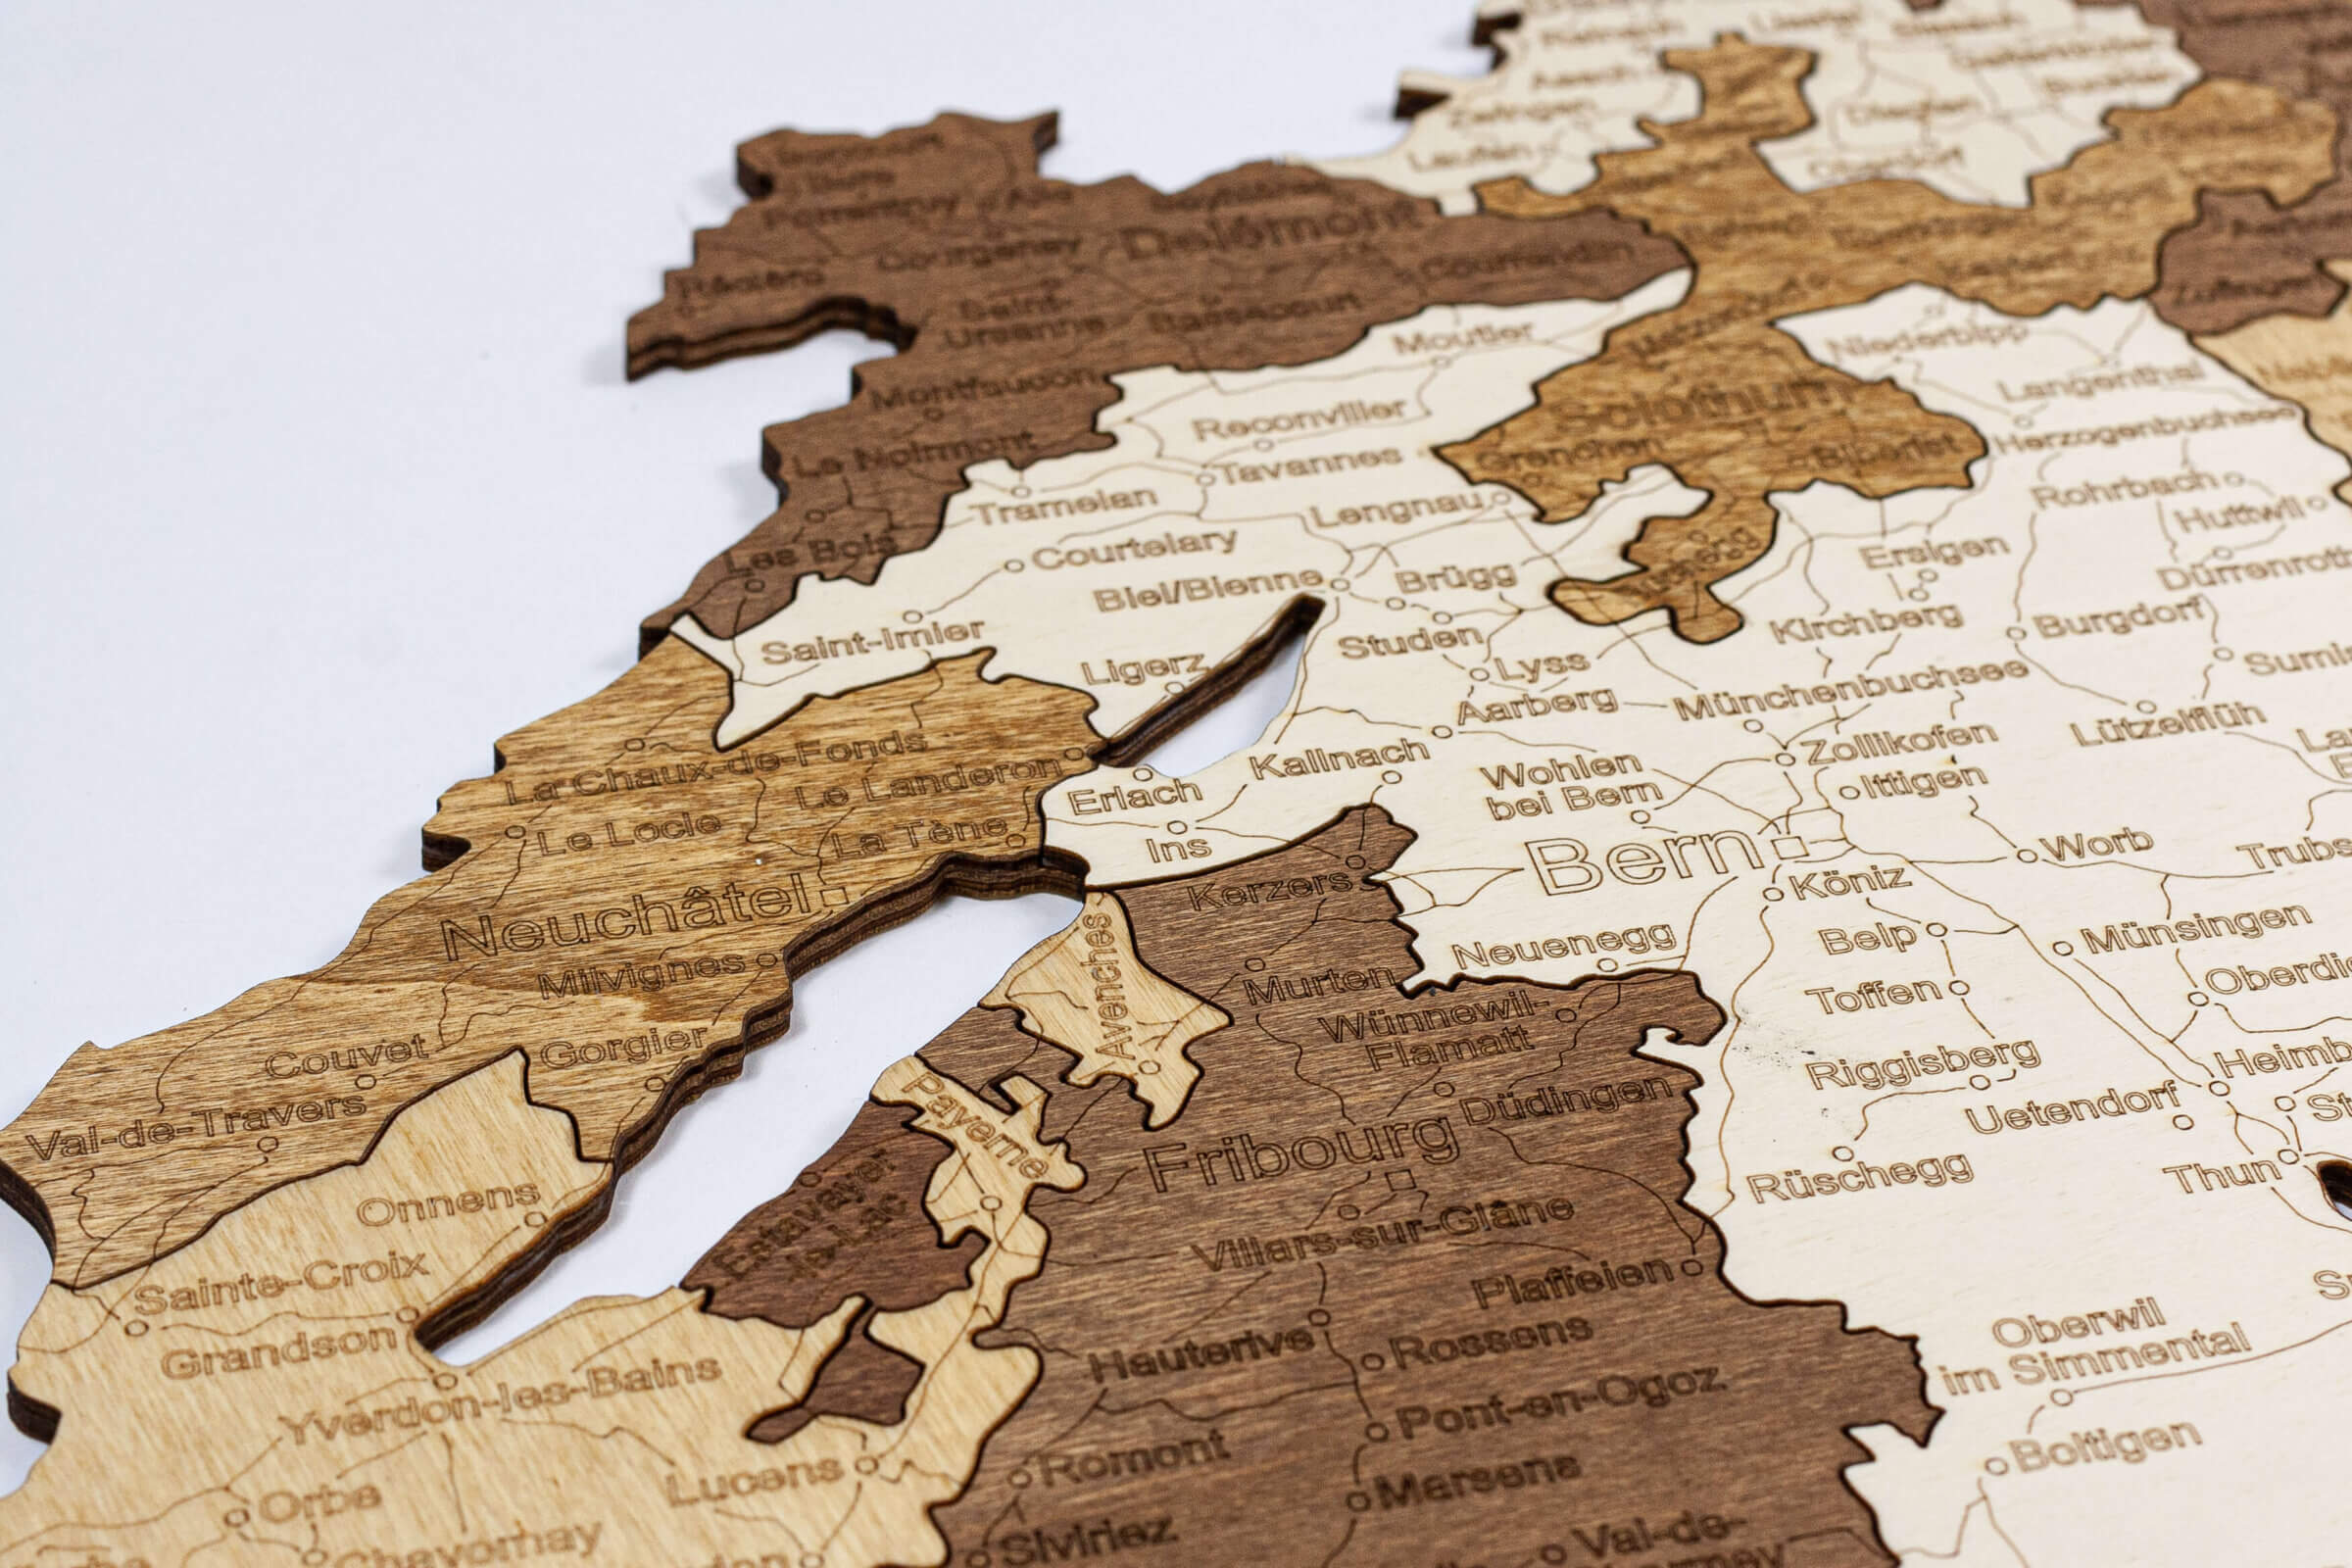 Laufen
Porrentruy
Courgenay
Delémont
Courrendlin
Saint-
Ursanne
Bassecourt
Moutier
Niederbipp
Langenthal
Montfaucon
Reconvilier
Solothurn
Herzogenbuchsee
Le Noirmont
Tavannes
Grenchen
Biberist
Tramelan
Lengnau
Rohrbach
Huttwil
Les Bois
Courtelary
Ersigen
Dürrenroth
Biel/Bienne
Brügg
Kirchberg
Burgdorf
Saint-Imier
Studen
Ligerz
Lyss
Münchenbuchsee
Aarberg
Lützelflüh
La Chaux-de-Fonds
Zollikofen
Kallnach
Le Landeron
Erlach
Wohlen
bei Bern
Ittigen
Le Locle
La Tène
Ins
Bern
Worb
Neuchâtel
Kerzers
Köniz
Milvignes
Avenches
Neuenegg
Belp
Münsingen
Murten
Toffen
Couvet
Gorgier
Wünnewil-
Flamatt
Riggisberg
Val-de-Travers
Payerne
Düdingen
Uetendorf
Fribourg
Thun
Onnens
Estavayer
-le-Lac
Rüschegg
Villars-sur-Glâne
Sainte-Croix
Plaffeien
Grandson
Hauterive
Rossens
Oberwil
im Simmental
Yverdon-les-Bains
Pont-en-Ogoz
Lucens
Romont
Marsens
Boltigen
Orbe
Chavornay
Siviriez
Val-de-